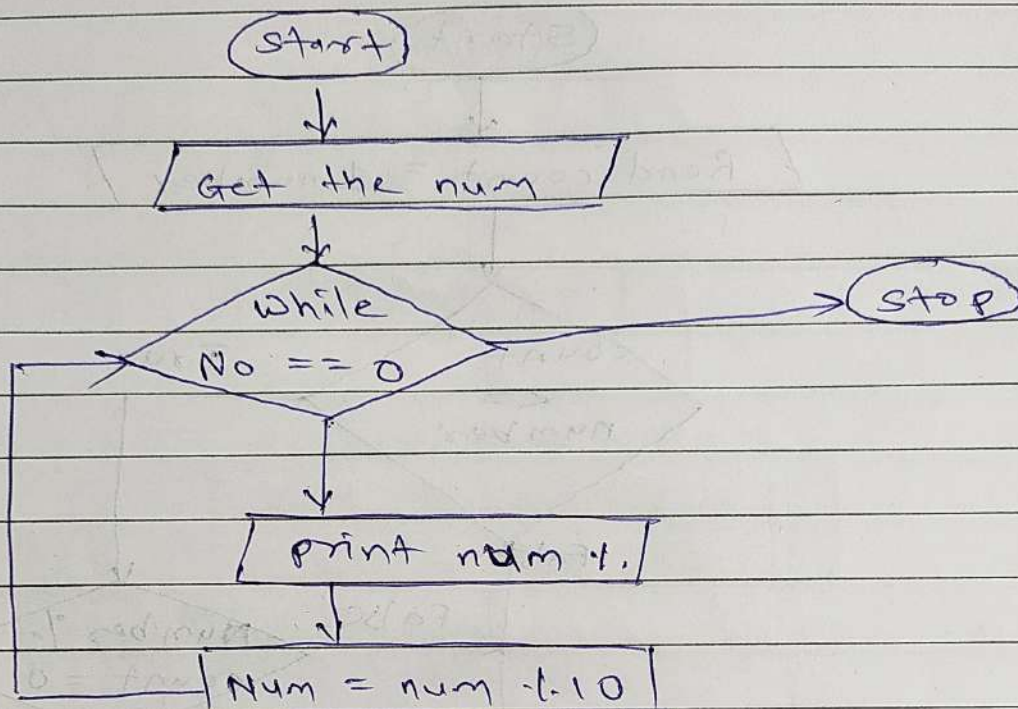 Start
Get the num
while
No == 0
stop
print num %.
Num = num % 10